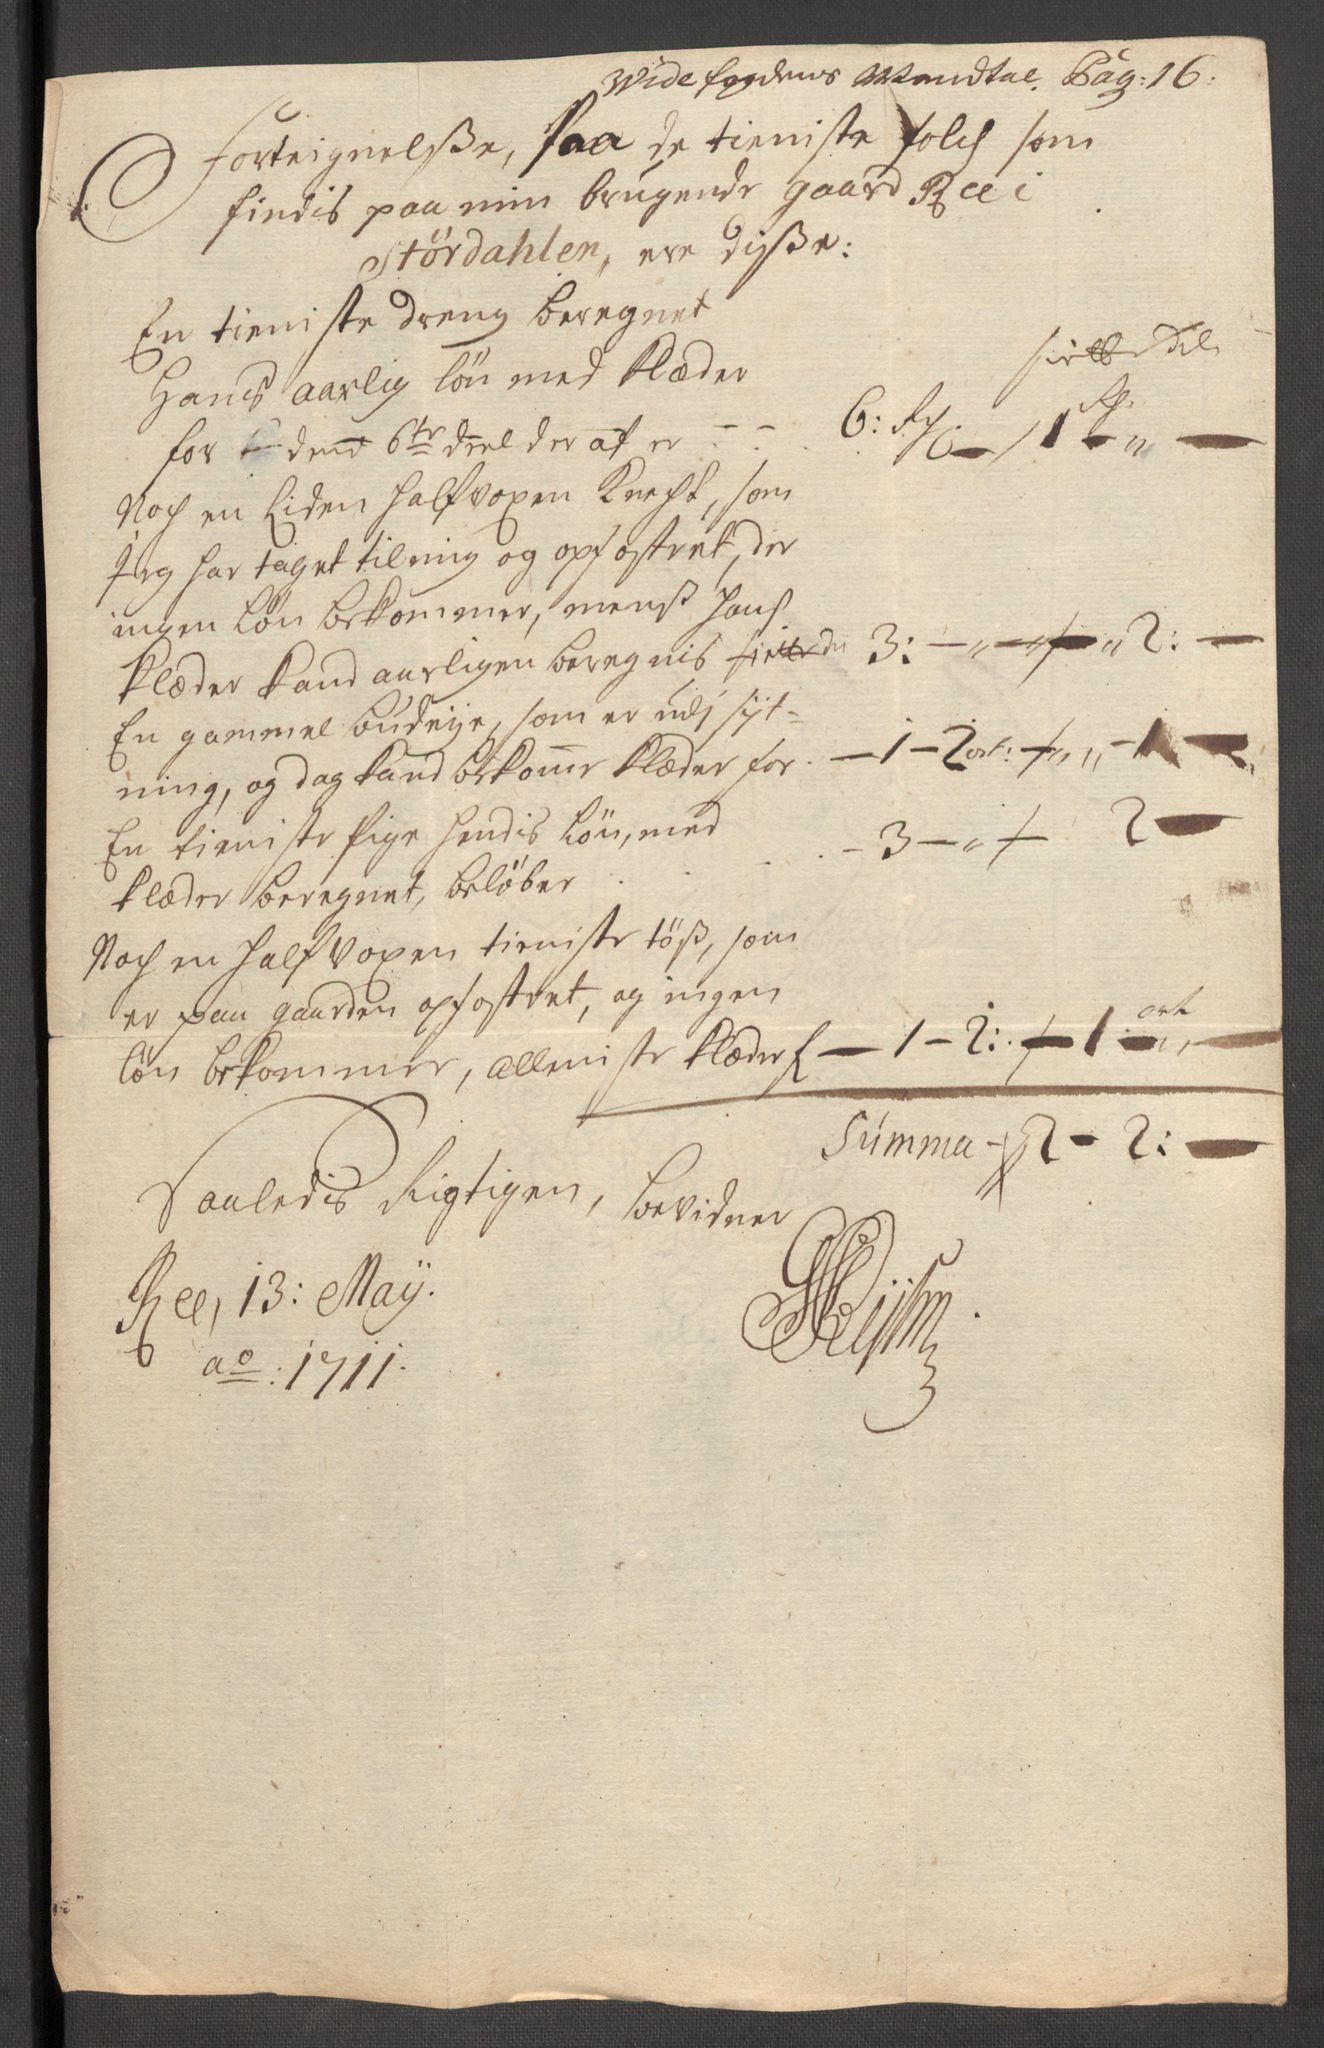 Vide fogdens Mandtal. Pag: 16.
Forteignelsse, Paa de tieniste folch som
findis paa min brugende gaard Ree i
Stördahlen, ere disse:
En tieniste dreng beregnet
Hans aarlig lön med Klæder
for den 6te deel der af er - - 6: Rd 1 - „ -
Noch en liden halfvoxen Knecht, som
Jeg har taget til mig og opfostret, der
ingen Lön bekommer, menß hans
Klæder kand aarligen beregnis 3: - „ - „ 2: -
En gammel büdeije, som er udj sÿt-
ning, og dog kand bekomme klæder for - 1 - 2 ort: „ „ - 1 -
En tieniste Pige hendis lön, med - 3 - „ 2 -
klæder beregnet, belöber
Noch en half voxen tieniste töß, som
er paa gaarden opfostret, og ingen ort
lön bekommer, alleniste klæder - 1 - 2: - 1 - „ -
Summa - 2 - 2: -
Saaledis Rigtigen, bevidner
Ree, 13: Maÿ.
ao: 1711.